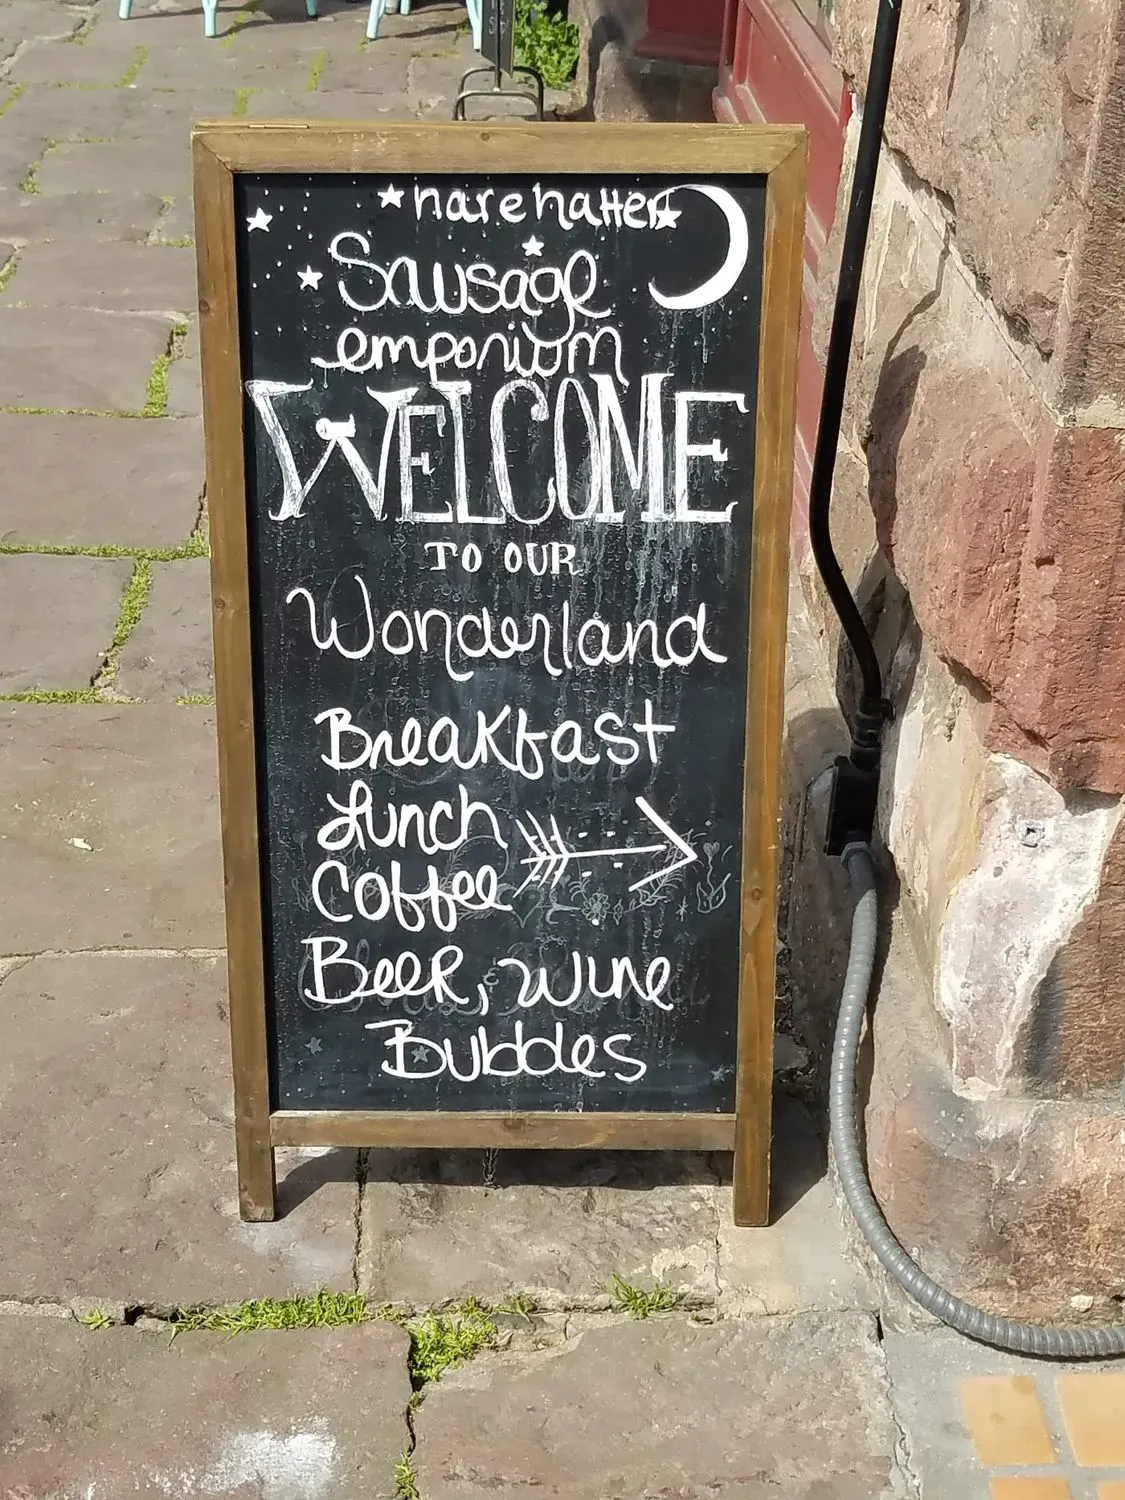 harehatter
Sausage
emporium
WELCOME
TO OUR
Wonderland
Breakfast
Lunch
Coffee
Beer, wine
Bubbles